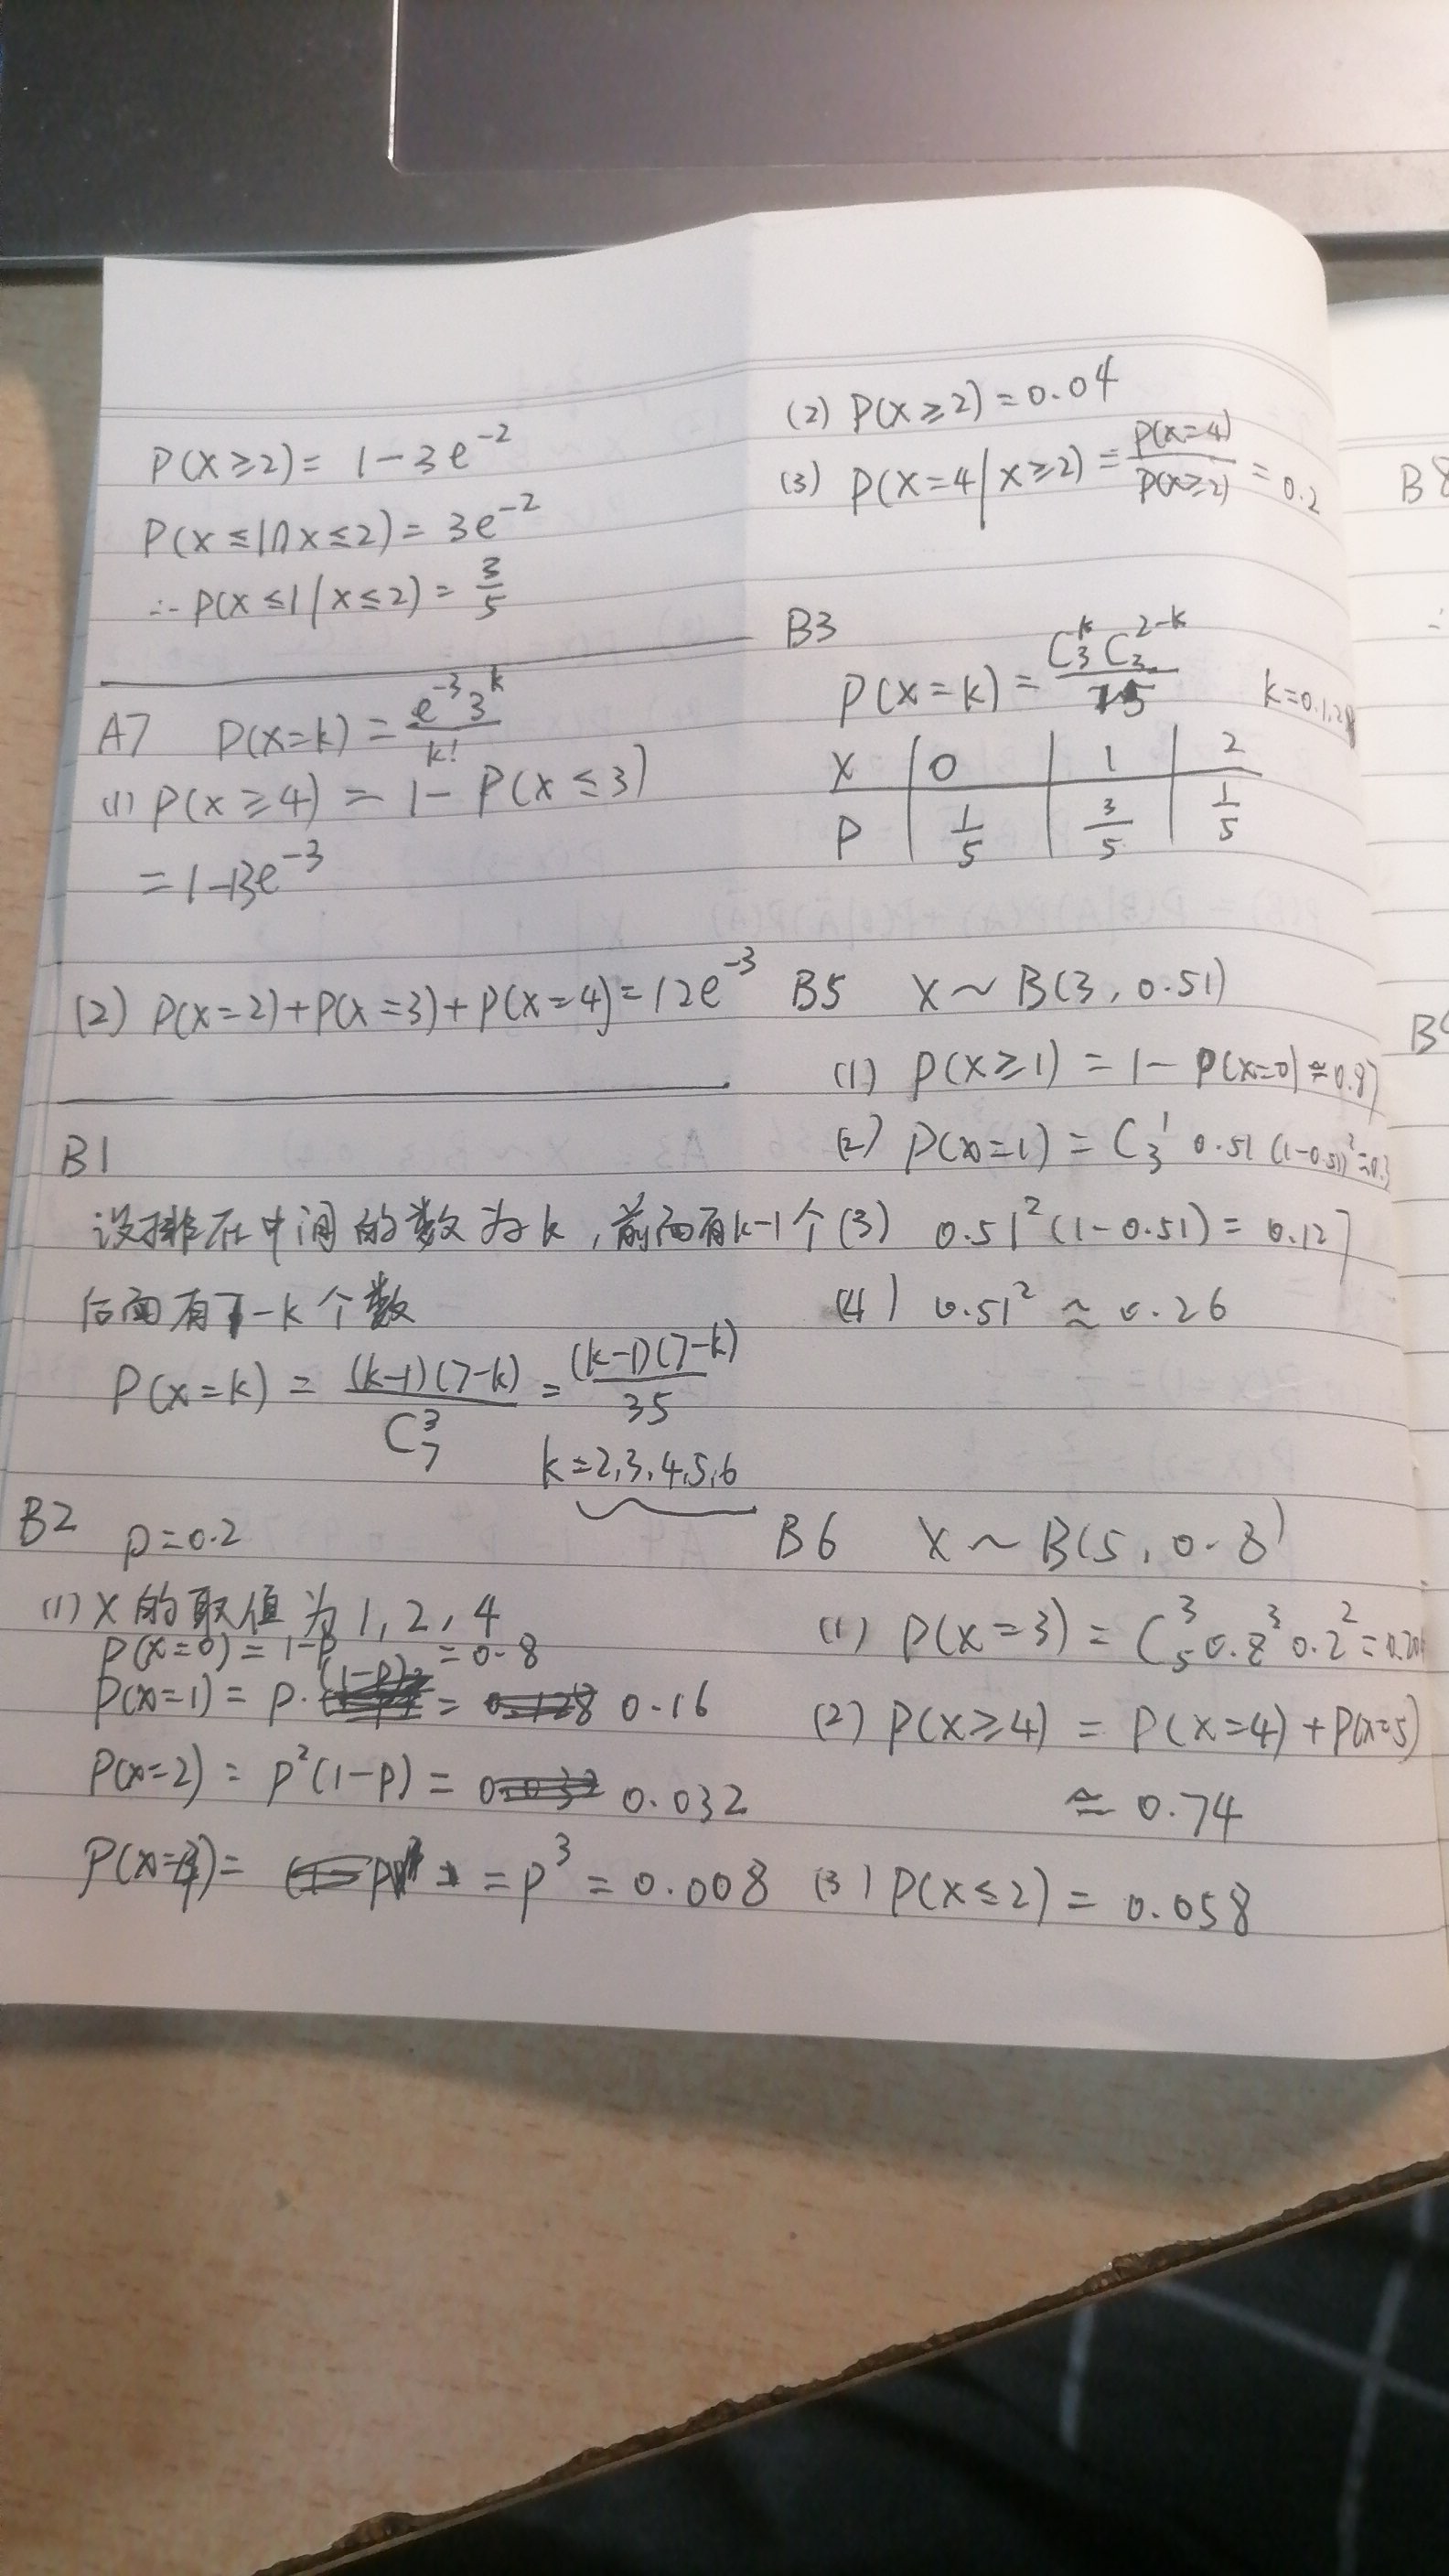 P(X≥2) = 1-3e⁻²
P(X≤1∩X≤2) = 3e⁻²
∴ P(X≤1/X≤2) = 3/5
A7 P(X=k) = e⁻³3ᵏ/k!
(1) P(X≥4) = 1-P(X≤3)
=1-13e⁻³
(2) P(X=2)+P(X=3)+P(X=4)=12e⁻³
B1
设排在中间的数为k,前面有k-1个
后面有7-k个数
P(X=k) = (k-1)(7-k)/C₇³ = (k-1)(7-k)/35
k=2,3,4,5,6
B2 p=0.2
(1) X的取值为1,2,4
P(X=0)=1-p=0.8
P(X=1)= p·(1-p) = 0.16
P(X=2) = p²(1-p) = 0.032
P(X=4)= =p³=0.008
(2) P(X≥2)=0.04
(3) P(X=4/X≥2) = P(X=4)/P(X≥2) = 0.2
B3
P(X=k) = C₃ᵏC₃²⁻ᵏ/15 k=0,1,2
X 0 1 2
P 1/5 3/5 1/5
B5 X~B(3,0.51)
(1) P(X≥1) = 1-P(X=0)≈0.87
(2) P(X=1) = C₃¹ 0.51 (1-0.51)²=0.3
(3) 0.51²(1-0.51) = 0.127
(4) 0.51² ≈ 0.26
B6 X~B(5,0.8)
(1) P(X=3) = C₅³0.8³0.2²=0.20
(2) P(X≥4) = P(X=4)+P(X=5)
≈0.74
(3) P(X≤2) = 0.058